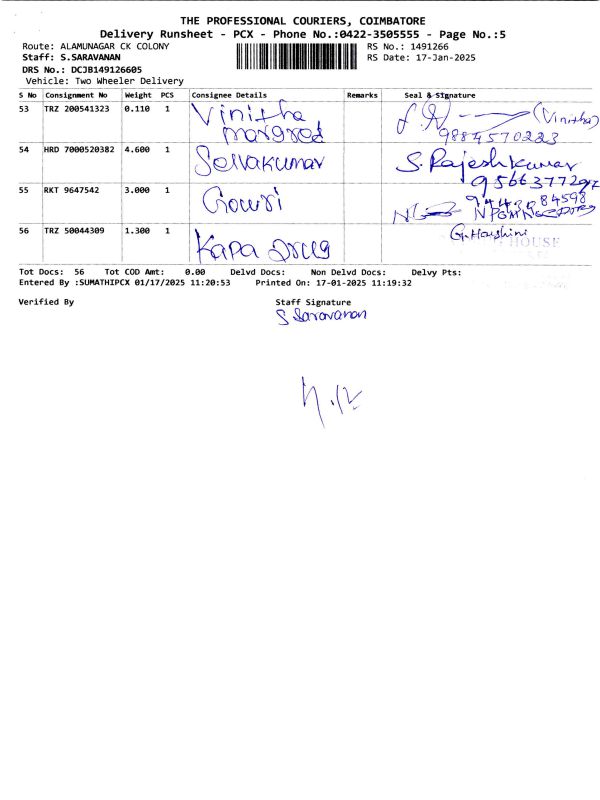 THE PROFESSIONAL COURIERS, COIMBATORE
Delivery Runsheet - PCX - Phone No.:0422-3505555 - Page No.:5
Route: ALAMUNAGAR CK COLONY RS No.: 1491266
Staff: S.SARAVANAN RS Date: 17-Jan-2025
DRS No.: DCJB149126605
Vehicle: Two Wheeler Delivery
S No Consignment No Weight PCS Consignee Details Remarks Seal & Signature
53 TRZ 200541323 0.110 1 Vinitha (Vinitha)
margred 9884570223
54 HRD 7000520382 4.600 1 Selvakumar S. Rajeshkumar
9566377297
55 RKT 9647542 3.000 1 Gowri
56 TRZ 50044309 1.300 1 Kapa Drug G. Harshini
HOUSE
Tot Docs: 56 Tot COD Amt: 0.00 Delvd Docs: Non Delvd Docs: Delvy Pts:
Entered By :SUMATHIPCX 01/17/2025 11:20:53 Printed On: 17-01-2025 11:19:32
Verified By Staff Signature
S Saravanan